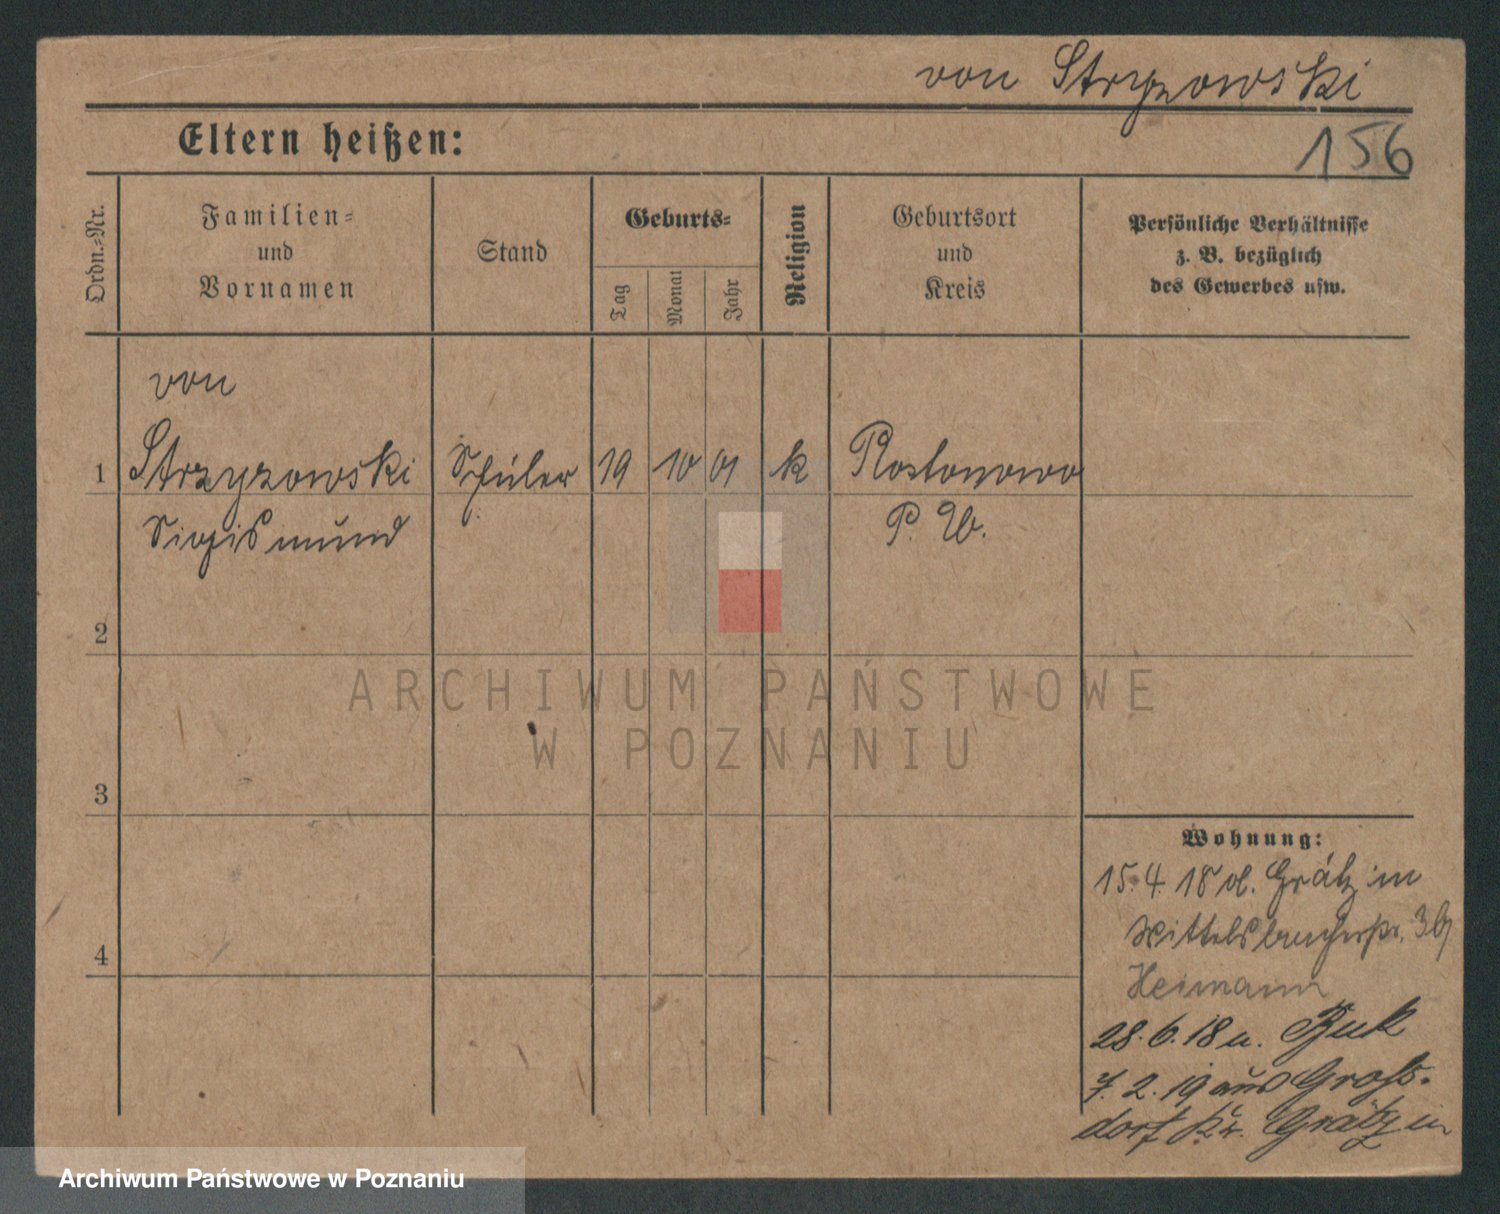 von Stryzowski
156
Eltern heißen:
Ordn.-Nr.
Familien-
und
Vornamen
Stand
Geburts-
Tag
Monat
Jahr
Religion
Geburtsort
und
Kreis
Persönliche Verhältnisse
z. B. bezüglich
des Gewerbes usw.
von
1 Strzyzowski Schüler 19 10 01 k Rostonowo
Sigismund P. W.
2
ARCHIWUM PAŃSTWOWE
W POZNANIU
3
4
Wohnung:
15.4.18 Grätz in
Wittelsbacherstr.
Heimann
28.6.18 u. Buk
7.2.19 aus Gross-
dorf Kr. Grätz in
Archiwum Państwowe w Poznaniu